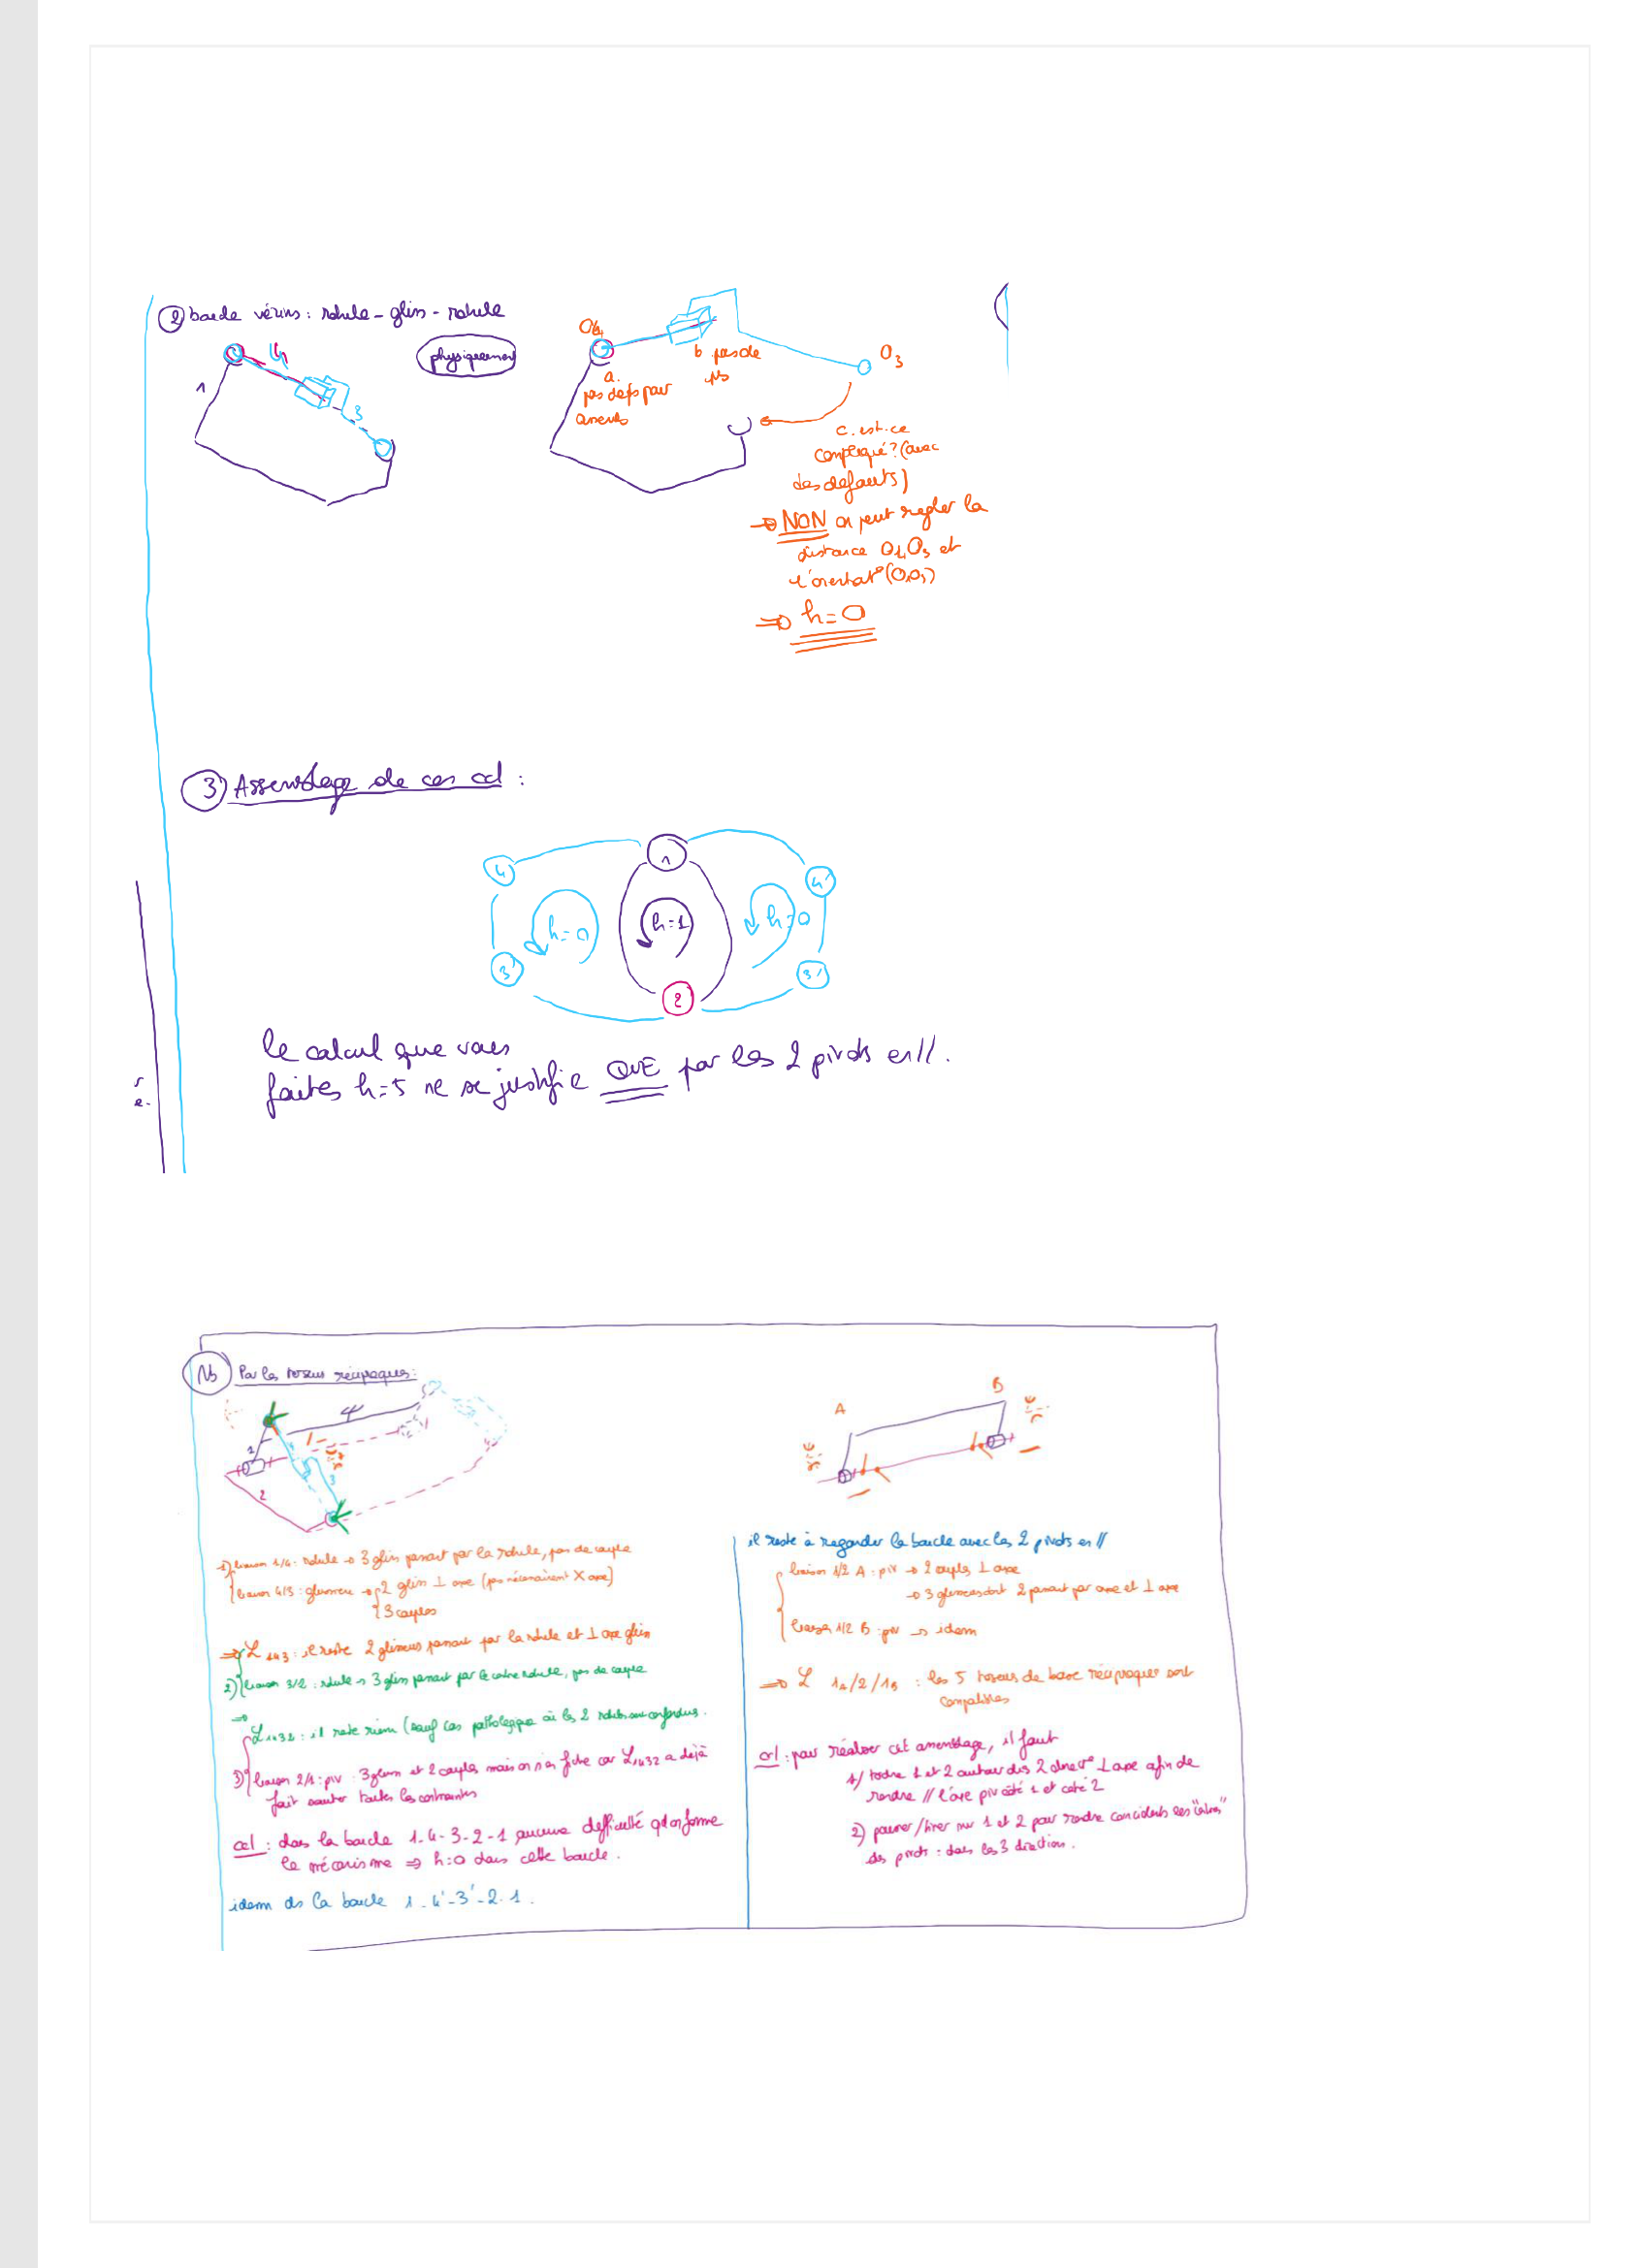 ② boucle vérins : rotule - gliss - rotule
physiquement
1
4
3
O4
O3
a.
pas de pb pour
amener
b pas de
pb
c. est-ce
compliqué ? (avec
des défauts)
→ NON on peut régler la
distance O4O3 et
l'orientat° (O4O3)
⇒ h=0
③ Assemblage de ces ccl :
1
4
4'
h=0
h=1
h=0
3
3'
2
le calcul que vous
faites h=5 ne se justifie QUE par les 2 pivots en //.
e.
Nb Par les torseurs réciproques :
1
4
3
2
A
B
1) liaison 1/4 : rotule → 3 gliss passant par la rotule, pas de couple
liaison 4/3 : glissière → 2 gliss ⊥ axe (pas nécessairement X axe)
3 couples
⇒ L 143 : il reste 2 glisseurs passant par la rotule et ⊥ axe gliss
2) liaison 3/2 : rotule → 3 gliss passant par le centre rotule, pas de couple
⇒ L 1432 : il reste rien (sauf cas pathologique où les 2 rotules sont confondues.
3) liaison 2/1 : piv : 3 gliss et 2 couples mais on s'en fiche car L1432 a déjà
fait sauter toutes les contraintes
ccl : dans la boucle 1-4-3-2-1 aucune difficulté qd on forme
le mécanisme ⇒ h=0 dans cette boucle.
idem ds la boucle 1-4'-3'-2-1.
il reste à regarder la boucle avec les 2 pivots en //
liaison 1/2 A : piv → 2 couples ⊥ axe
→ 3 glisseurs dont 2 passant par axe et ⊥ axe
liaison 1/2 B : piv → idem
⇒ L 1A/2/1B : les 5 torseurs de base réciproques sont
compatibles
ccl : pour réaliser cet assemblage, il faut
1/ tordre 1 et 2 autour des 2 direct° ⊥ axe afin de
rendre // l'axe piv côté 1 et côté 2
2) pousser/tirer sur 1 et 2 pour rendre coincidents les "centres"
des pivots : dans les 3 direction.